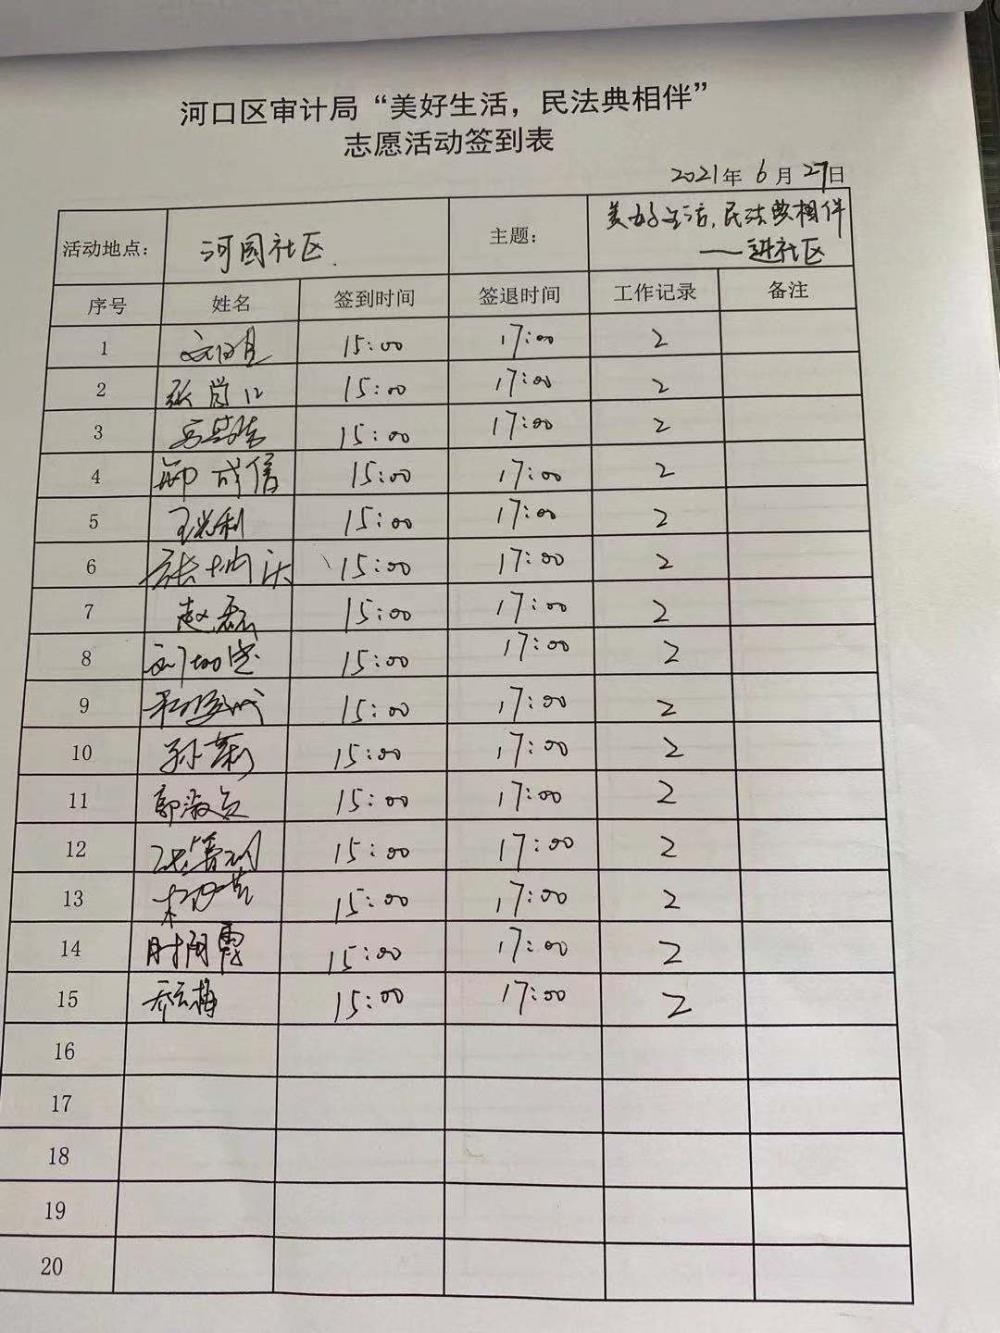 河口区审计局“美好生活，民法典相伴”
志愿活动签到表
2021年6月27日
活动地点： 河园社区. 主题： 美好生活,民法典相伴
——进社区
序号 姓名 签到时间 签退时间 工作记录 备注
1 15:00 17:00 2
2 15:00 17:00 2
3 15:00 17:00 2
4 成信 15:00 17:00 2
5 15:00 17:00 2
6 15:00 17:00 2
7 赵磊 15:00 17:00 2
8 15:00 17:00 2
9 15:00 17:00 2
10 15:00 17:00 2
11 15:00 17:00 2
12 15:00 17:00 2
13 15:00 17:00 2
14 15:00 17:00 2
15 乔云梅 15:00 17:00 2
16
17
18
19
20